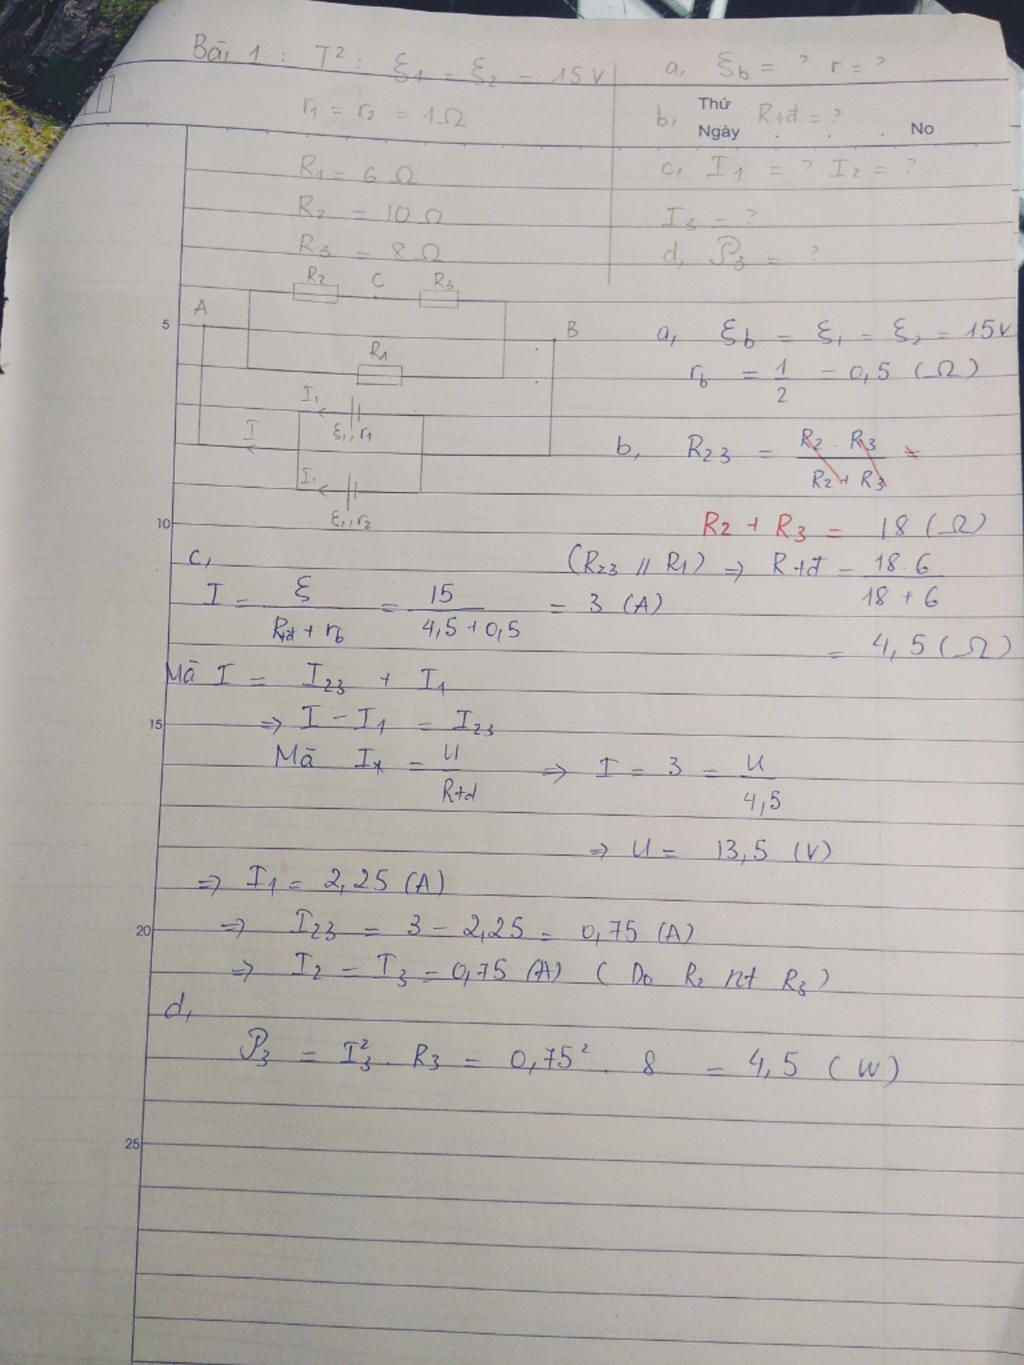 Bài 1 : T² : ξ1 = ξ2 = 15V
r1 = r2 = 1Ω
R1 = 6 Ω
R2 = 10 Ω
R3 = 8 Ω
a, ξb = ? r = ?
b, Rtđ = ?
Thứ
Ngày
No
c, I1 = ? I2 = ?
I3 = ?
d, P3 = ?
R2 C R3
A
B
R1
I1
ξ1, r1
I
I1
ξ1, r2
5
10
15
20
25
a, ξb = ξ1 = ξ2 = 15V
rb = 1/2 = 0,5 (Ω)
b, R23 = R2 . R3 / R2 + R3 =
R2 + R3 = 18 (Ω)
(R23 // R1) => Rtđ = 18.6 / 18 + 6
= 4,5 (Ω)
c,
I = ξ / Rtđ + rb = 15 / 4,5 + 0,5 = 3 (A)
Mà I = I23 + I1
=> I - I1 = I23
Mà I* = U / Rtđ => I = 3 = U / 4,5
=> U = 13,5 (V)
=> I1 = 2,25 (A)
=> I23 = 3 - 2,25 = 0,75 (A)
=> I2 = I3 = 0,75 (A) ( Do R2 nt R3 )
d,
P3 = I3² . R3 = 0,75² . 8 = 4,5 (W)